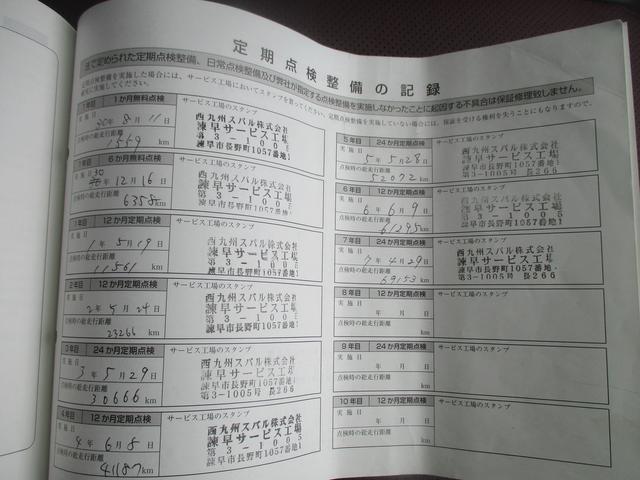 定期点検整備の記録
法で定められた定期点検整備、日常点検整備及び弊社が指定する点検整備を実施しなかったことに起因する不具合は保証修理致しません。
定期点検整備を実施した場合には、サービス工場においてスタンプを書ってください。定期点検整備を実施していない場合には、保証を受ける権利を失うこともありますので、
確実に実施してください。
1か月無料点検
サービス工場のスタンプ
実施日
30年8月11日
点検時の総走行距離
1559 km
西九州スバル株式会社
諫早サービス工場
第3-1005
諫早市長野町1057番地1
6か月無料点検
サービス工場のスタンプ
実施日
30年12月16日
点検時の総走行距離
6358 km
西九州スバル株式会社
諫早サービス工場
第3-1005
諫早市長野町1057番地1
1年目 12か月定期点検
サービス工場のスタンプ
実施日
1年5月19日
点検時の総走行距離
11561 km
西九州スバル株式会社
諫早サービス工場
第3-1005
諫早市長野町1057番地1
2年目 12か月定期点検
サービス工場のスタンプ
実施日
2年5月24日
点検時の総走行距離
23266 km
西九州スバル株式会社
諫早サービス工場
第3-1005
諫早市長野町1057番地1
3年目 24か月定期点検
サービス工場のスタンプ
実施日
3年5月29日
点検時の総走行距離
30666 km
西九州スバル株式会社
諫早サービス工場
諫早市長野町1057番地1
第3-1005号 第266
4年目 12か月定期点検
サービス工場のスタンプ
実施日
4年6月8日
点検時の総走行距離
41187 km
西九州スバル株式会社
諫早サービス工場
第3-1005
諫早市長野町1057番地1
5年目 24か月定期点検
サービス工場のスタンプ
実施日
5年5月28日
点検時の総走行距離
52072 km
西九州スバル株式会社
諫早サービス工場
諫早市長野町1057番地1
第3-1005号 第266
6年目 12か月定期点検
サービス工場のスタンプ
実施日
6年6月9日
点検時の総走行距離
61295 km
西九州スバル株式会社
諫早サービス工場
第3-1005
諫早市長野町1057番地1
7年目 24か月定期点検
サービス工場のスタンプ
実施日
7年4月29日
点検時の総走行距離
69153 km
西九州スバル株式会社
諫早サービス工場
諫早市長野町1057番地1
第3-1005号 第266
8年目 12か月定期点検
サービス工場のスタンプ
実施日
年 月 日
点検時の総走行距離
km
9年目 24か月定期点検
サービス工場のスタンプ
実施日
年 月 日
点検時の総走行距離
km
10年目 12か月定期点検
サービス工場のスタンプ
実施日
年 月 日
点検時の総走行距離
km